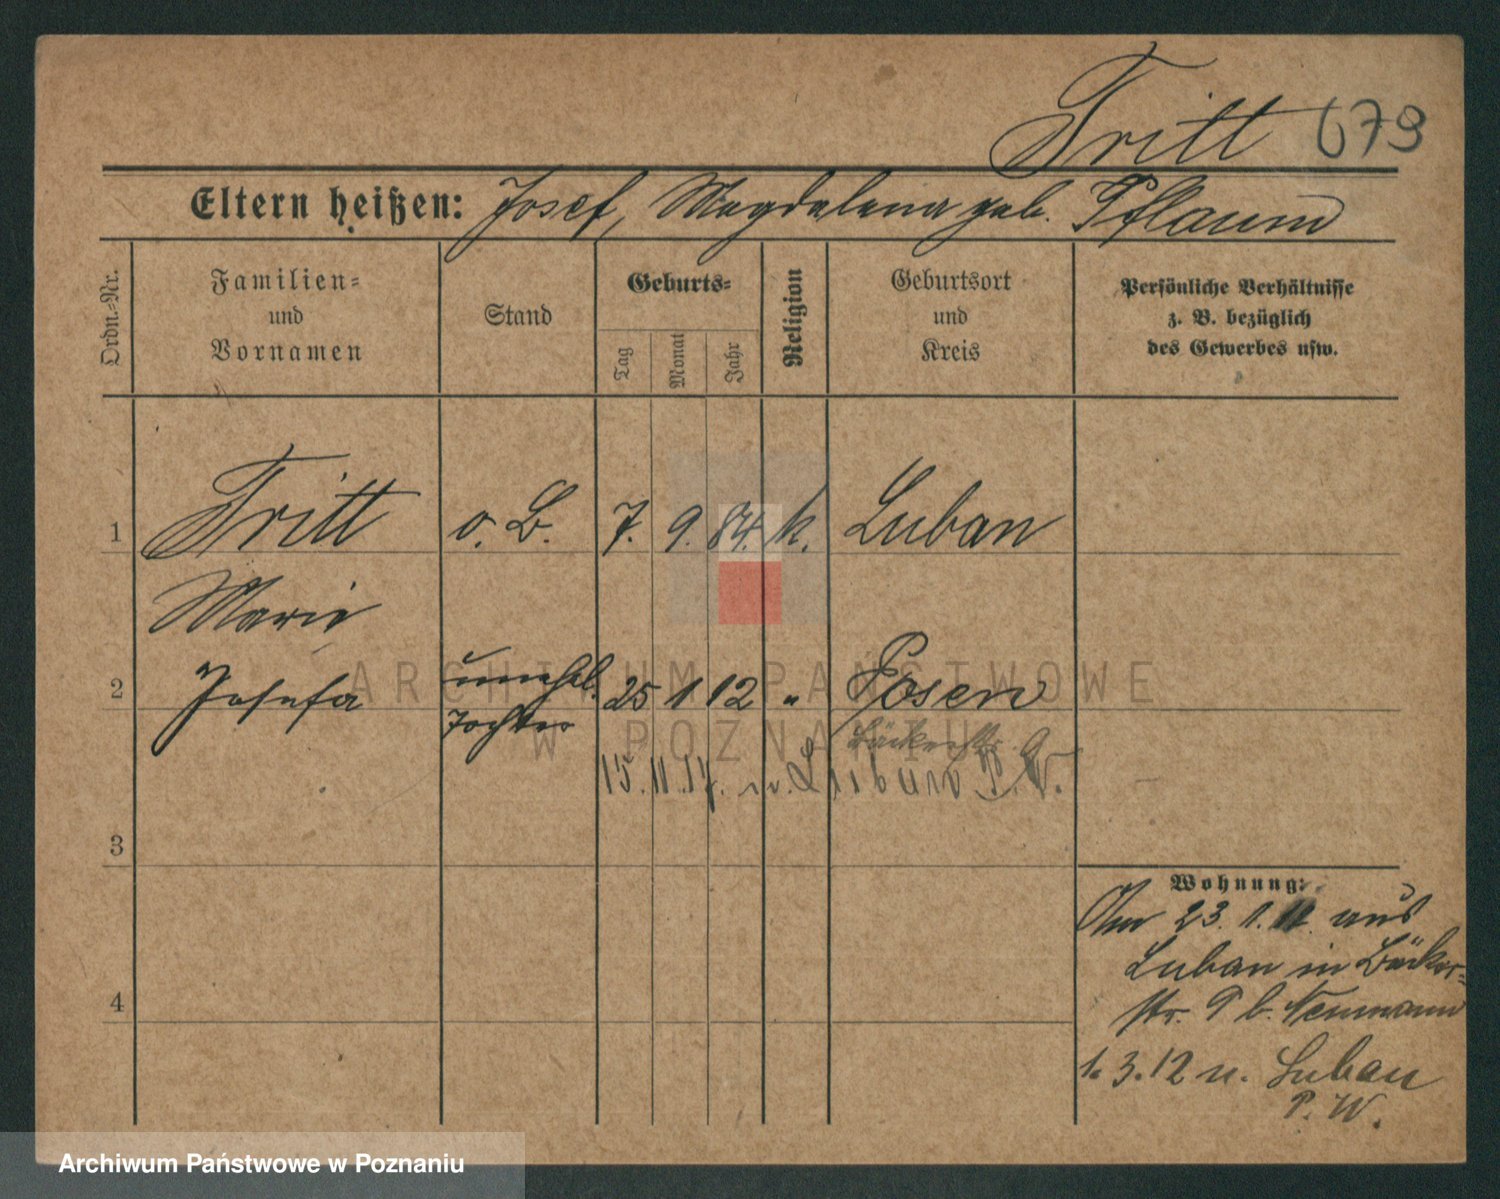 Tritt 679
Eltern heißen: Josef, Magdalena geb. Pflaum
Ordn.-Nr.
Familien-
und
Vornamen
Stand
Geburts-
Tag
Monat
Jahr
Religion
Geburtsort
und
Kreis
Persönliche Verhältnisse
z. B. bezüglich
des Gewerbes usw.
1 Tritt o. B. 7. 9. 84. k. Luban
Marie
2 Josefa unehel. 25 1 12 " Posen
Tochter
Bäckerstr. 9
15. 11. 17. n. Luban P. W.
3
Wohnung:
Am 23. 1. 12. aus
Luban in Bäcker-
str. 9 b. Neumann
4
1. 3. 12 n. Luban
P. W.
ARCHIWUM PAŃSTWOWE
W POZNANIU
Archiwum Państwowe w Poznaniu